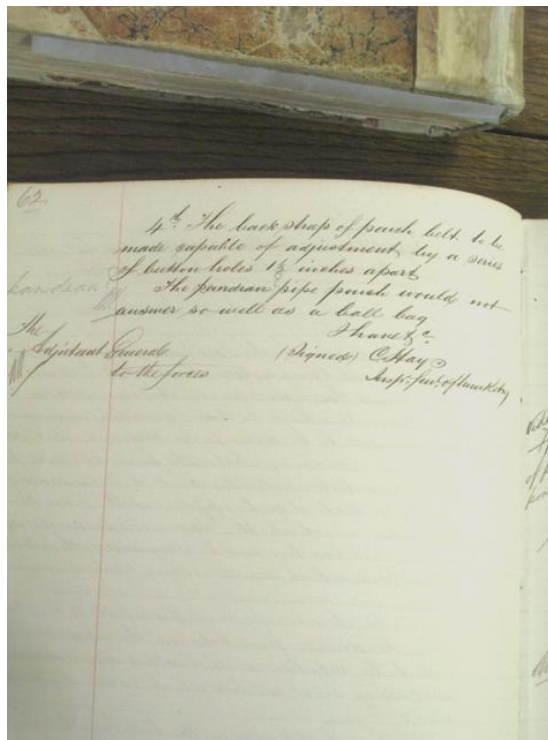 62
4th. The back strap of pouch belt to be
made capable of adjustment by a series
of button holes 1½ inches apart
The pandean pipe pouch would not
answer so well as a ball bag
I have &c
(Signed) C Hay
Insp. Genl. of Musketry
The
Adjutant General
to the forces
pandean